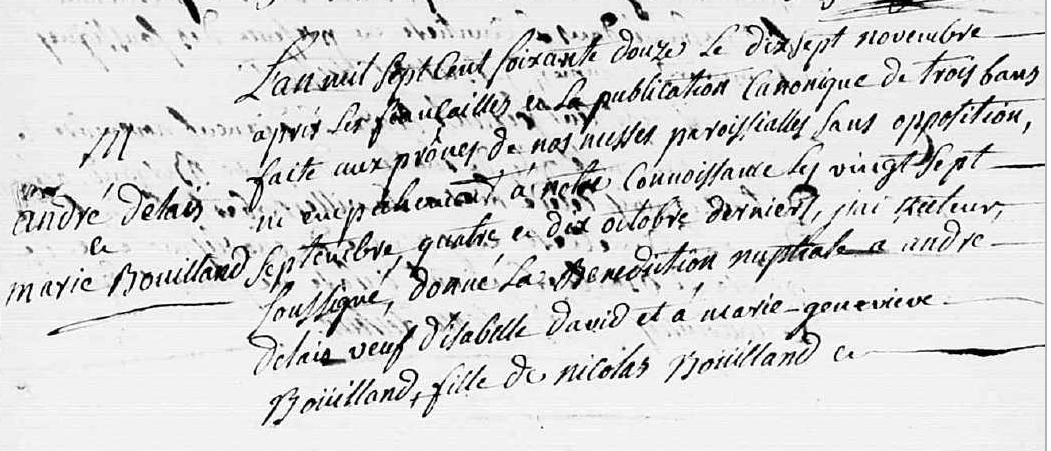 M
andré délais
et
marie Bouilland
L'an mil sept cent soixante douze le dixsept novembre
après les fiançailles et la publication canonique de trois bans
faite aux prônes de nos messes paroissialles sans opposition,
ni empêchement à notre connoissance les vingt sept
septembre, quatre et dix octobre derniers, j'ai
soussigné, donné la Bénédiction nuptiale a andré
délais veuf d'isabelle david et à marie-geneviève
Bouilland, fille de nicolas Bouilland et